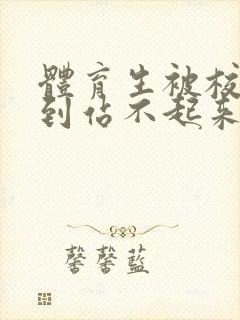 體育生被校
到佔不起來
馨馨藍